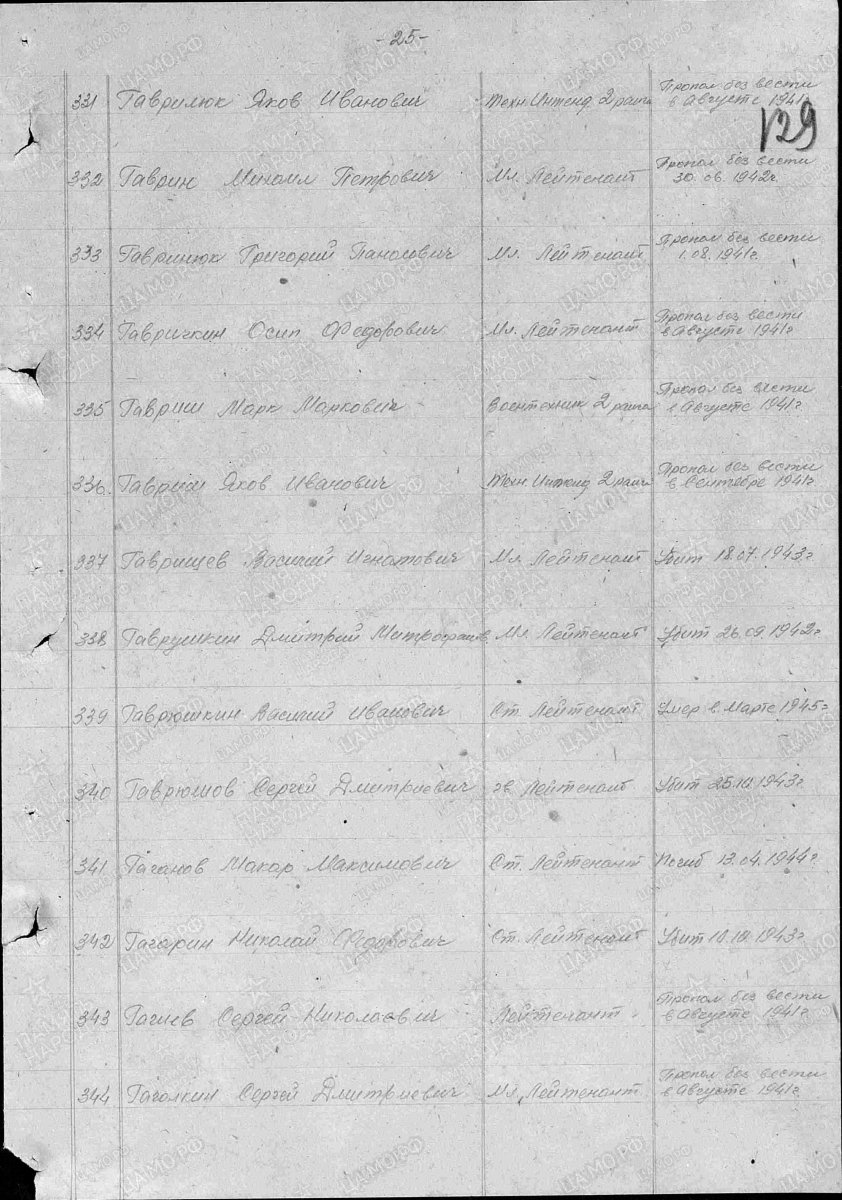 - 25 -
129
331 Гаврилюк Яков Иванович Техн. Интенд 2 ранга Пропал без вести
в Августе 1941г
332 Гаврин Михаил Петрович Мл. Лейтенант Пропал без вести
30.06.1942г.
333 Гавринюк Григорий Панасович Мл. Лейтенант Пропал без вести
1.08.1941г.
334 Гавричкин Осип Федорович Мл. Лейтенант Пропал без вести
в Августе 1941г
335 Гавриш Марк Маркович Воентехник 2 ранга Пропал без вести
в Августе 1941г
336. Гавриш Яков Иванович Техн. Интенд 2 ранга Пропал без вести
в Сентябре 1941г.
337 Гаврищев Василий Игнатович Мл. Лейтенант Убит 18.07.1943г
338 Гаврушкин Дмитрий Митрофанов. Мл. Лейтенант Убит 26.09.1942г
339 Гаврюшкин Василий Иванович Ст. Лейтенант Умер в Марте 1945г
340 Гаврюшов Сергей Дмитриевич гв Лейтенант Убит 25.10.1943г
341 Гаганов Макар Максимович Ст. Лейтенант Погиб 13.04.1944г
342 Гагарин Николай Федорович Ст. Лейтенант Убит 10.10.1943г
343 Гагиев Сергей Николаевич Лейтенант Пропал без вести
в Августе 1941г
344 Гаголкин Сергей Дмитриевич Мл. Лейтенант Пропал без вести
в Августе 1941г